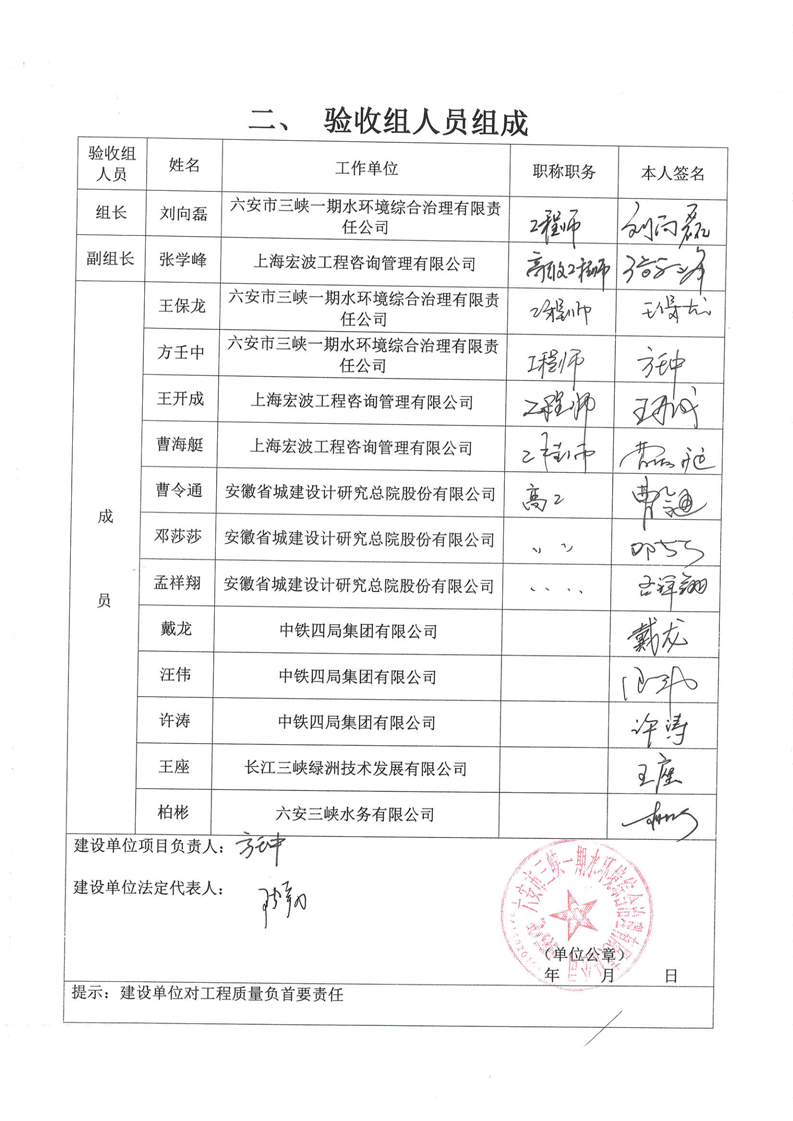 二、 验收组人员组成
验收组
人员
姓名
工作单位
职称职务
本人签名
组长
刘向磊
六安市三峡一期水环境综合治理有限责
任公司
工程师
刘向磊
副组长
张学峰
上海宏波工程咨询管理有限公司
高级工程师
张学峰
成
员
王保龙
六安市三峡一期水环境综合治理有限责
任公司
工程师
王保龙
方壬中
六安市三峡一期水环境综合治理有限责
任公司
工程师
方壬中
王开成
上海宏波工程咨询管理有限公司
工程师
王开成
曹海艇
上海宏波工程咨询管理有限公司
工程师
曹海艇
曹令通
安徽省城建设计研究总院股份有限公司
高工
曹令通
邓莎莎
安徽省城建设计研究总院股份有限公司
邓莎莎
孟祥翔
安徽省城建设计研究总院股份有限公司
孟祥翔
戴龙
中铁四局集团有限公司
戴龙
汪伟
中铁四局集团有限公司
汪伟
许涛
中铁四局集团有限公司
许涛
王座
长江三峡绿洲技术发展有限公司
王座
柏彬
六安三峡水务有限公司
柏彬
建设单位项目负责人：方壬中
建设单位法定代表人：
六安市三峡一期水环境综合治理有限责任公司
（单位公章）
年 月 日
提示：建设单位对工程质量负首要责任